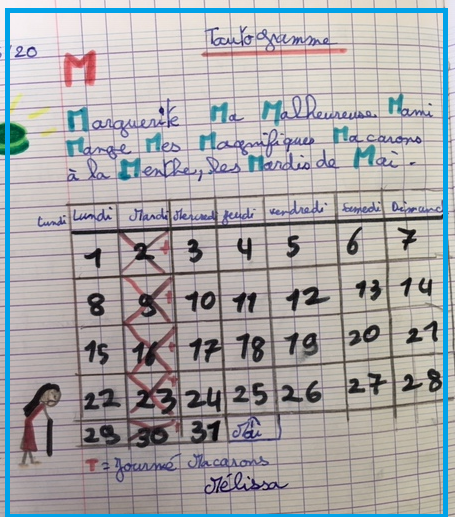 /20
Tautogramme
M
Marguerite Ma Malheureuse Mami
Mange Mes Magnifiques Macarons
à la Menthe, les Mardis de Mai.
Lundi Lundi Mardi Mercredi jeudi vendredi Samedi Dimanc
1 2 3 4 5 6 7
8 9 10 11 12 13 14
15 16 17 18 19 20 21
22 23 24 25 26 27 28
29 30 31 Mai
T = Journé Macarons
Mélissa